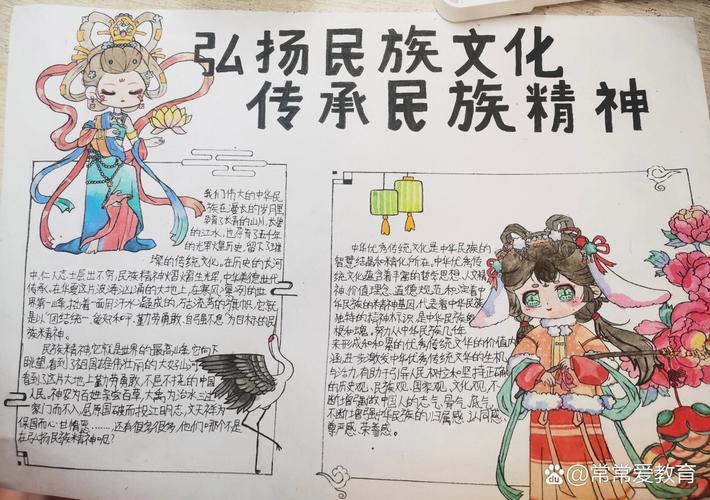 弘扬民族文化
传承民族精神
我们伟大的中华民
族在漫长的岁月里
孕育了长青的山川,长流
的江水,也孕育了五千年
的光辉灿烂历史,留下了璀
璨的传统文化。在历史的长河
中,仁人志士层出不穷,民族精神熠熠生光辉,中华美德世代
传承。在华夏这片波涛汹涌的大地上,在寒风凛冽的世
界第一峰,拉着一面用汗水凝成的万古流芳的旗帜,它就
是以“团结统一,爱好和平,勤劳勇敢,自强不息”为目标的民
族术精神。
民族精神,它就是世界的最高山峰,它向下
眺望,看到了祖国雄伟壮丽的大好山河
看到了这片大地上勤劳勇敢,不屈不挠的中国
人民。神农为百姓亲尝百草,大禹为治水三过
家门而不入,屈原国破而投江明志,文天祥为
保国而心甘情愿……还有很多很多,他们哪个不是
在弘扬民族精神呢?
中华优秀传统文化是中华民族的
智慧结晶和精化所在。中华优秀传
统文化蕴含着丰富的哲学思想、人文精
神、价值理念、道德规范,积淀着中
华民族的精神基因,代表着中华民族
独特的精神标识,是中华民族的
根和魂。努力从中华民族几千年
来形成和积累的优秀传统文化的价值内
涵,进一步激发中华优秀传统文化的生机
与活力,有助于引导人民树立和坚持正确
的历史观、民族观、国家观、文化观,不
断增强做中国人的志气、骨气、底气,
不断增强中华民族的归属感、认同感、
尊严感、荣誉感。
Bai 常常爱教育